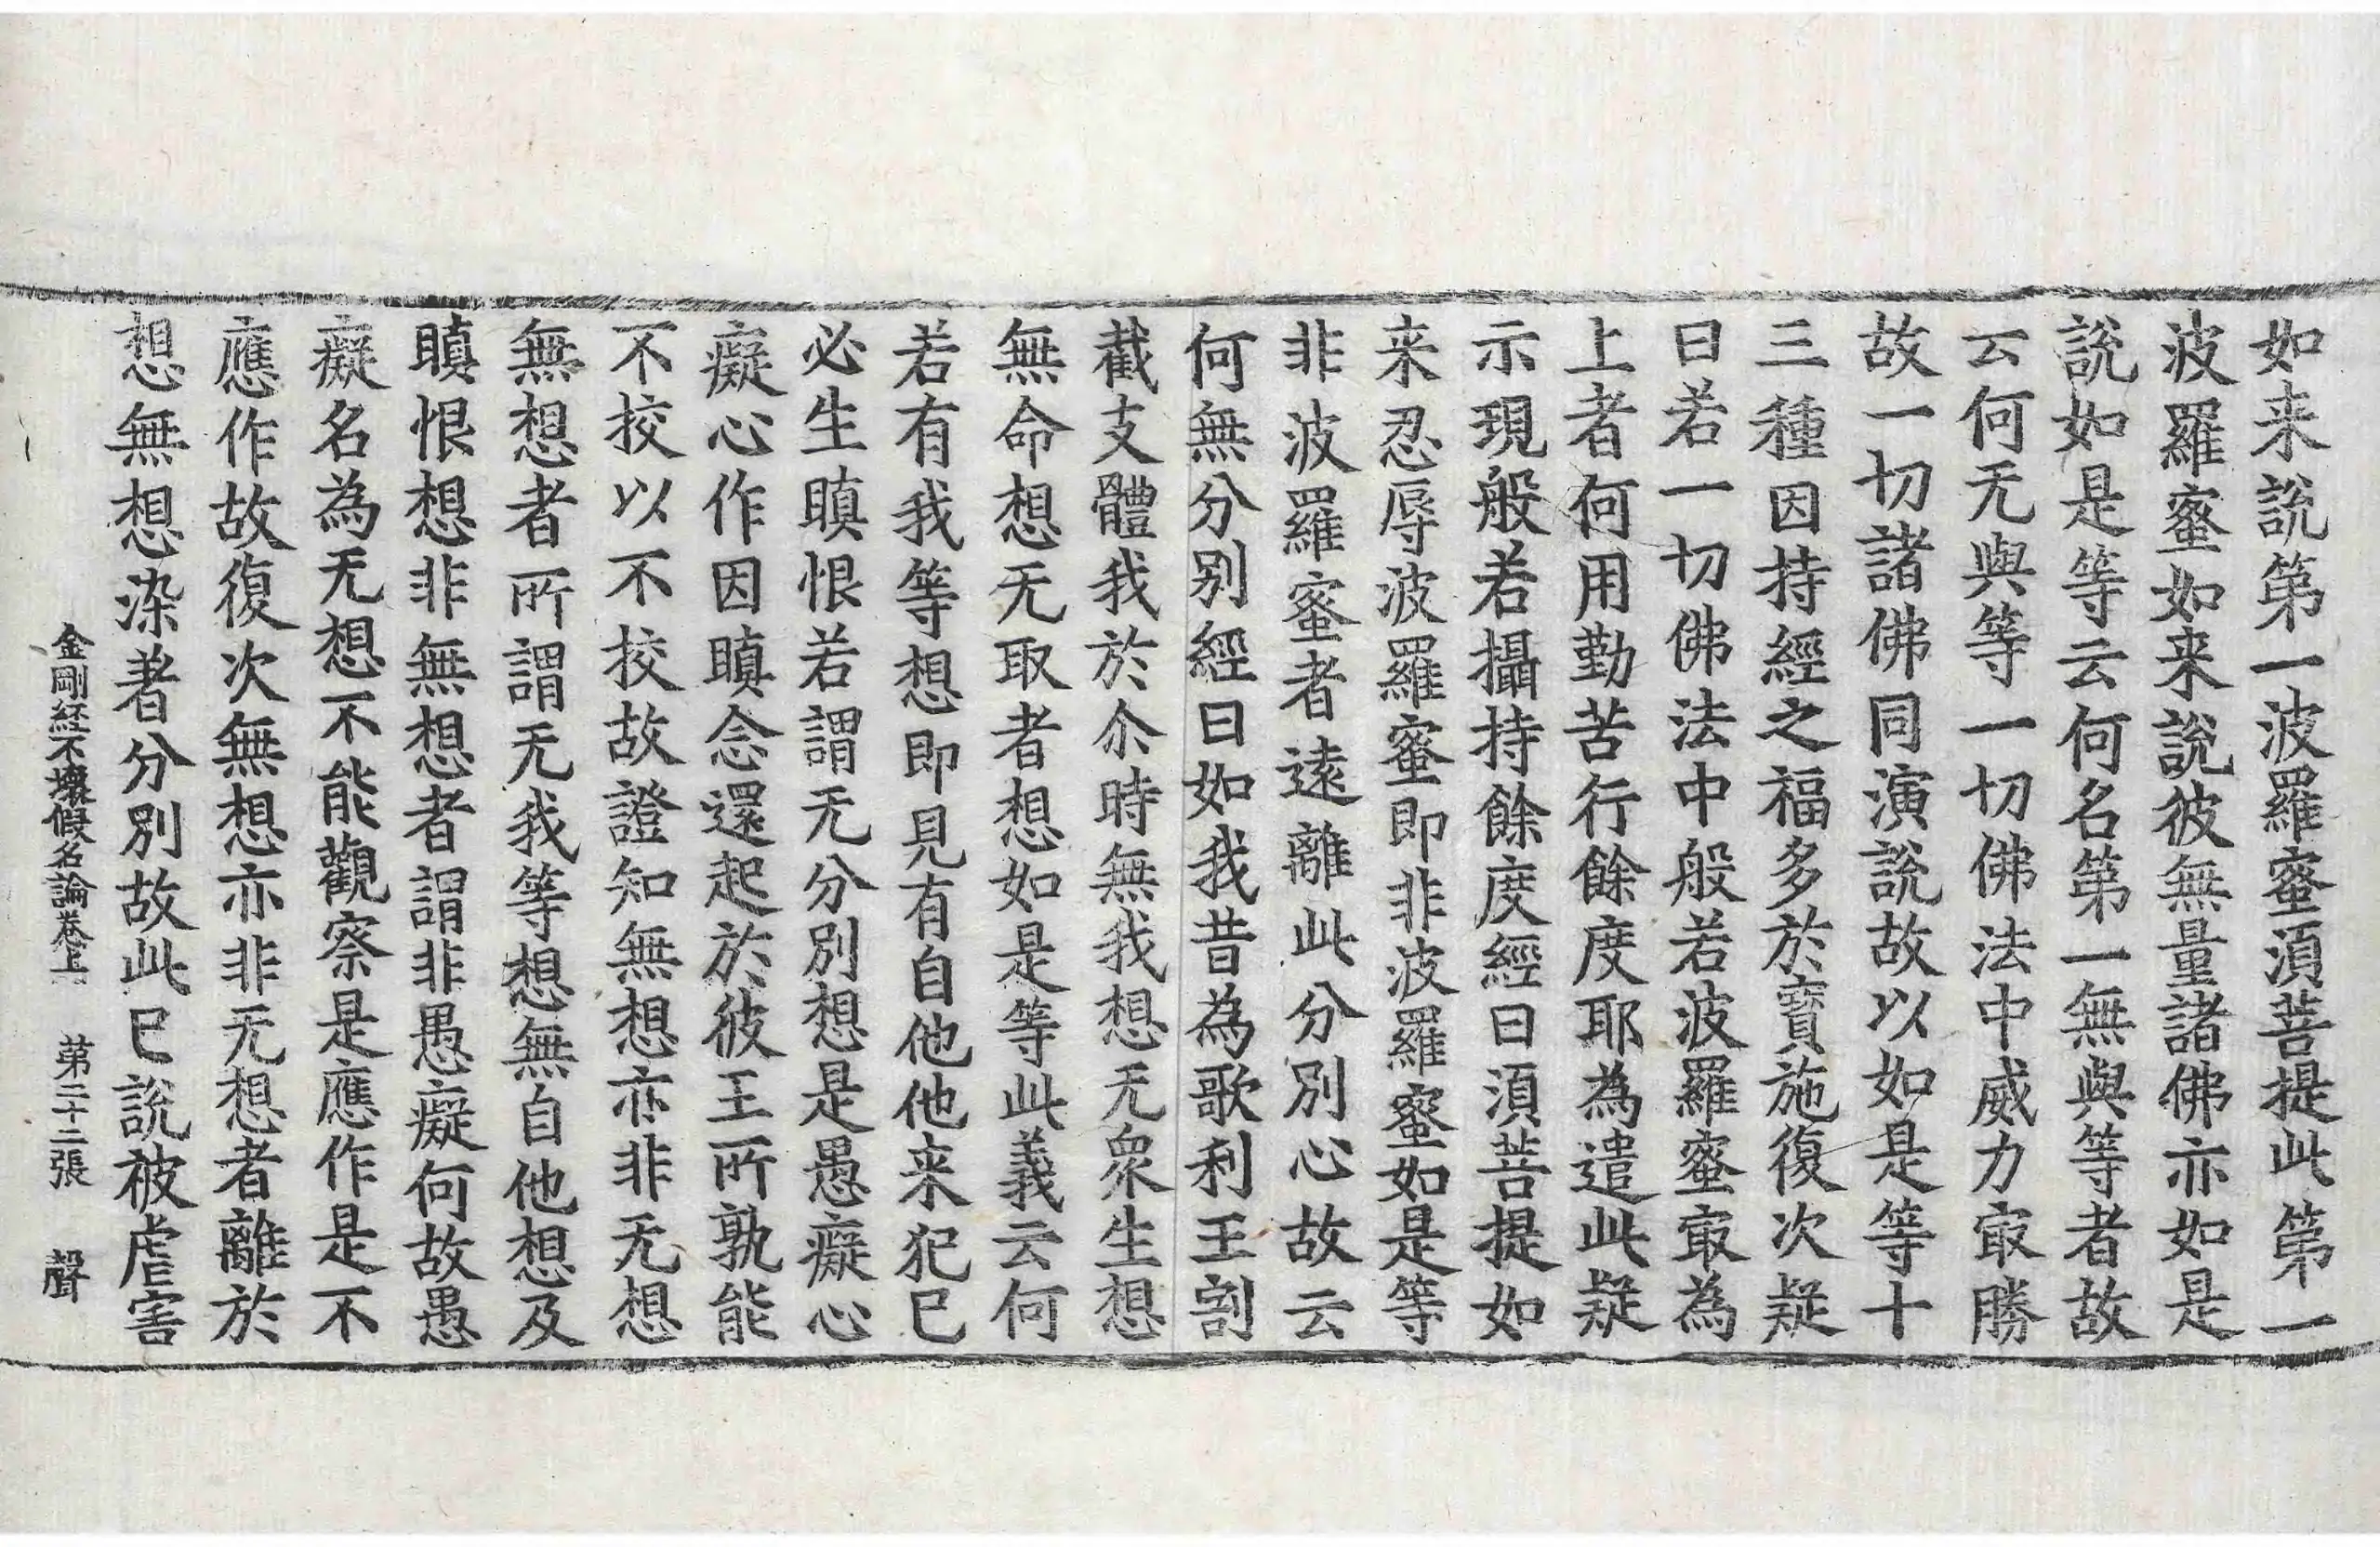 如来說第一波羅蜜湏菩提此第一
波羅蜜如来說彼無量諸佛亦如是
說如是等云何名第一無與等者故
云何无與等一切佛法中威力㝡勝
故一切諸佛同演說故以如是等十
三種因持經之福多於寶施復次疑
曰若一切佛法中般若波羅蜜㝡為
上者何用勤苦行餘度耶為遣此疑
示現般若攝持餘度經曰湏菩提如
来忍辱波羅蜜即非波羅蜜如是等
非波羅蜜者遠離此分別心故云
何無分别經曰如我昔為歌利王割
截支體我於尒時無我想无衆生想
無命想无取者想如是等此義云何
若有我等想即見有自他他来犯已
必生瞋恨若謂无分別想是愚癡心
癡心作因瞋念還起於彼王所孰能
不挍以不挍故證知無想亦非无想
無想者所謂无我等想無自他想及
瞋恨想非無想者謂非愚癡何故愚
癡名為无想不能觀察是應作是不
應作故復次無想亦非无想者離於
想無想染著分別故此已說被虐害
金剛経不壞假名論卷上 第二十二張 聲